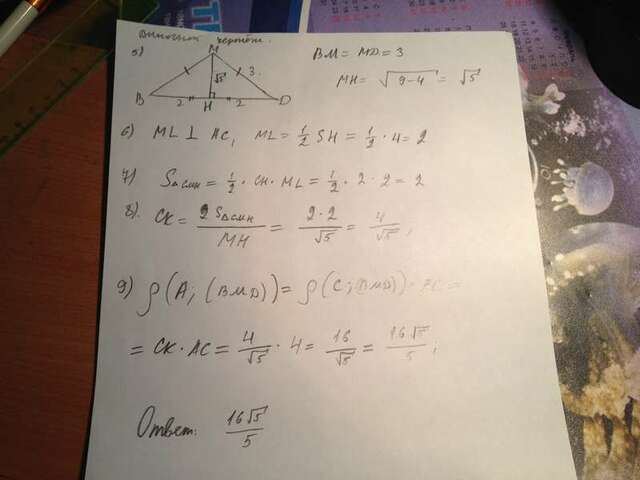 Выносной чертёж.
5)
M
√5
3.
B 2 H 2 D
BM = MD = 3
MH = √(9-4) = √5
6) ML ⊥ AC, ML = 1/2 SH = 1/2 · 4 = 2
7) S△CMH = 1/2 · CH · ML = 1/2 · 2 · 2 = 2
8). CK = 2S△CMH / MH = 2·2 / √5 = 4/√5;
9) ρ(A; (BMD)) = ρ(C; (BMD)) ·
= CK · AC = 4/√5 · 4 = 16/√5 = 16√5/5;
Ответ: 16√5/5